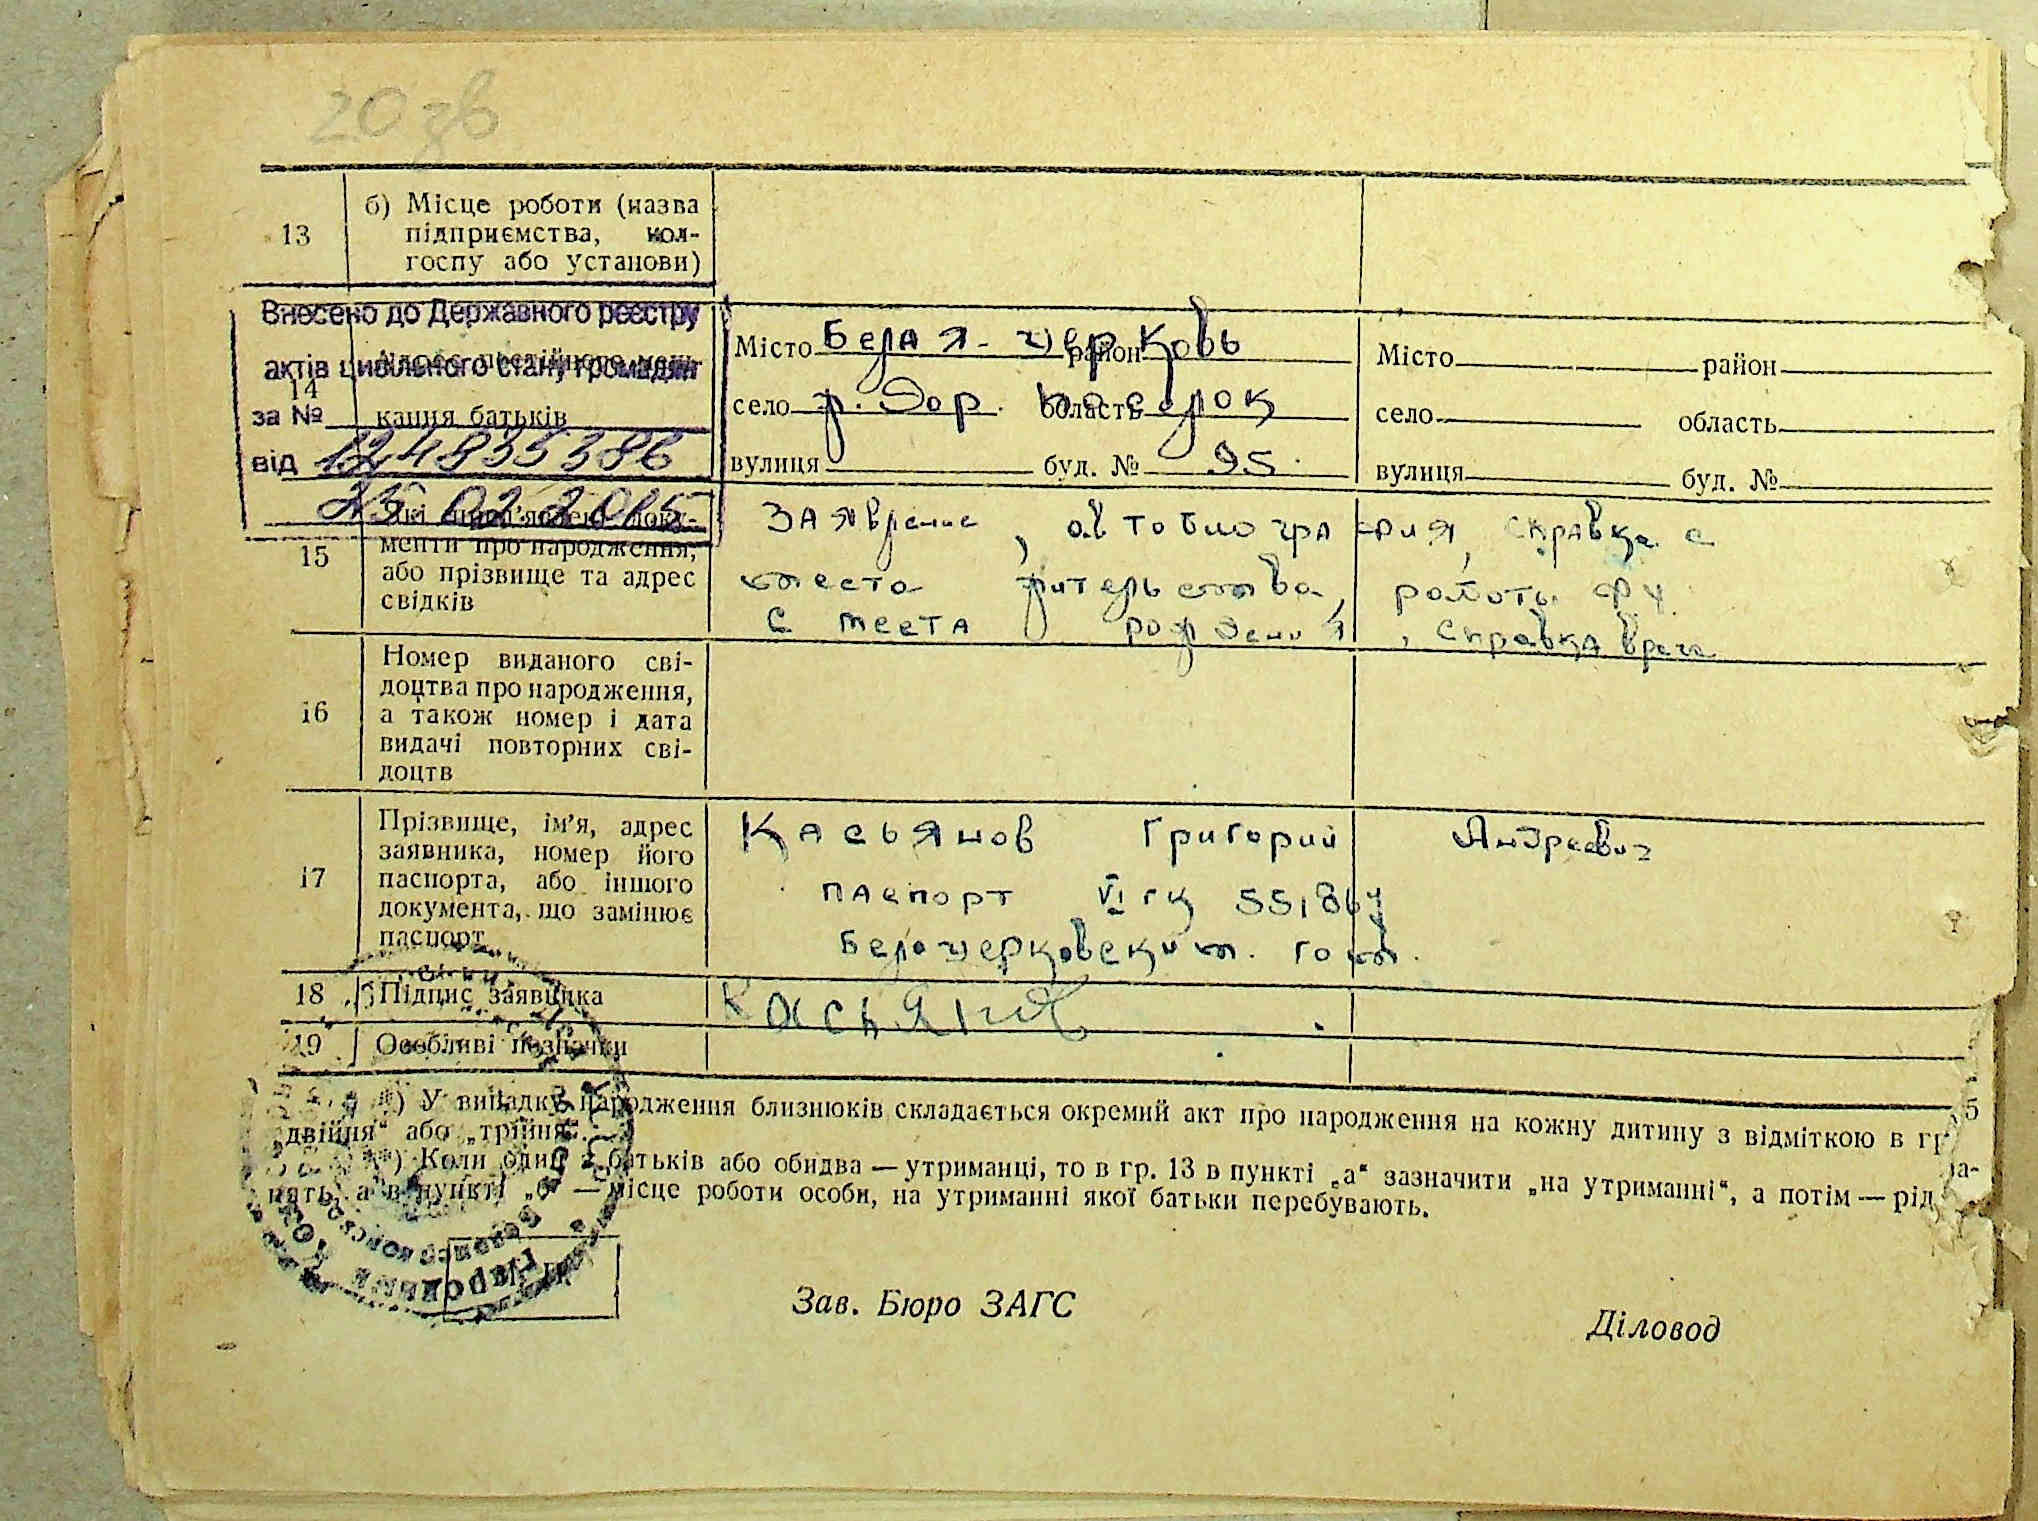 20 зв
13
б) Місце роботи (назва
підприємства, кол-
госпу або установи)
Внесено до Державного реєстру
актів цивільного стану громадян
за №
124835386
від
25 02 2015
14
кання батьків
Місто Белая-Церковь район
село р. Зор. поселок область
вулиця буд. № 95.
Місто район
село область
вулиця буд. №
15
менти про народження,
або прізвище та адрес
свідків
Заявление, автобиография, справка с
места жительства, работы
с места рождения, справка врача
16
Номер виданого сві-
доцтва про народження,
а також номер і дата
видачі повторних сві-
доцтв
17
Прізвище, ім'я, адрес
заявника, номер його
паспорта, або іншого
документа, що замінює
паспорт
Касьянов Григорий Андреевич
паспорт VI ГК 551864
Белоцерковским гом.
18
Підпис заявника
Касьянов
19
Особливі позначки
*) У випадку народження близнюків складається окремий акт про народження на кожну дитину з відміткою в гр. 5
„двійня“ або „трійня“.
**) Коли один з батьків або обидва — утриманці, то в гр. 13 в пункті „а“ зазначити „на утриманні“, а потім — рід за-
нять, а в пункті „б“ — місце роботи особи, на утриманні якої батьки перебувають.
Зав. Бюро ЗАГС
Діловод